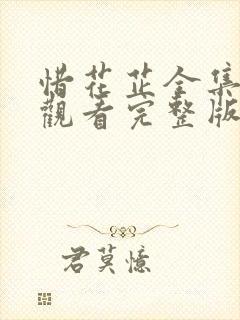 惜花芷全集
觀看完整版
君莫憶